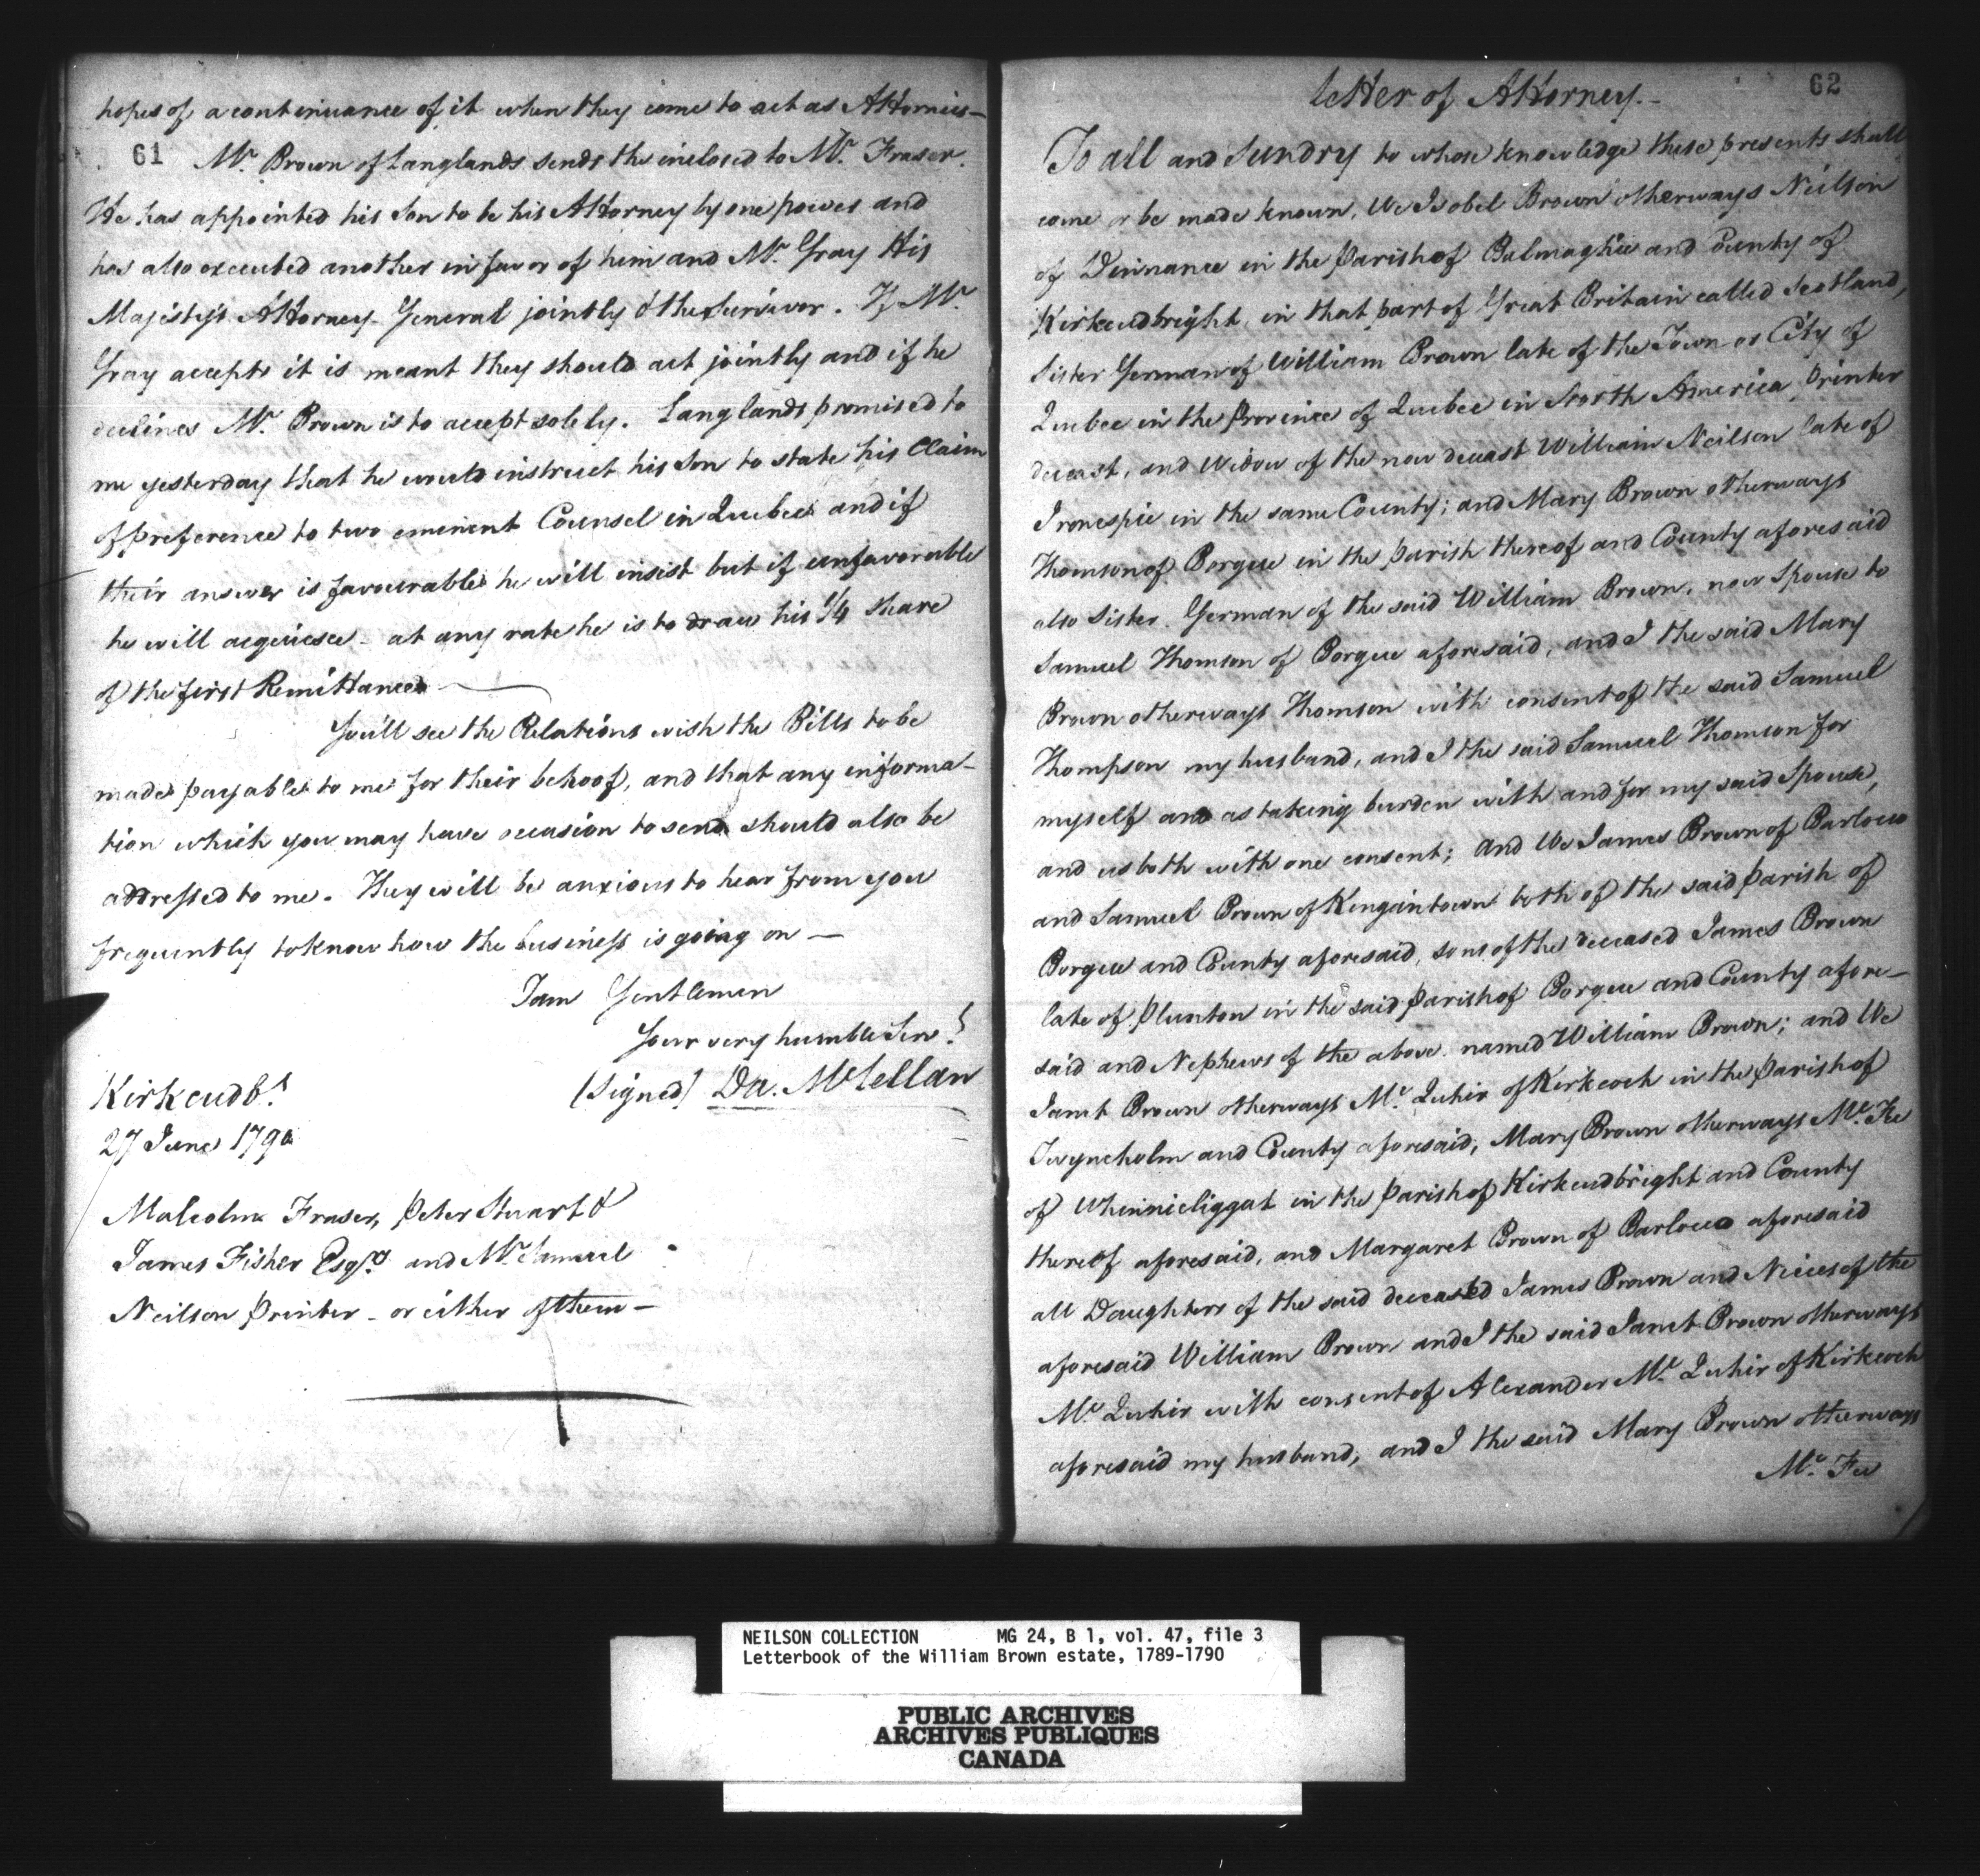 hopes of a continuance of it when they come to act as Attornies—
61 Mr. Brown of Langlands sends the inclosed to Mr. Fraser.
He has appointed his Son to be his Attorney by one power and
has also executed another in favor of him and Mr. Gray His
Majesty's Attorney General jointly & the survivor. If Mr.
Gray accepts it is meant they should act jointly and if he
declines Mr. Brown is to accept solely. Langlands promised to
me yesterday that he would instruct his Son to state his Claim
of preference to two eminent Counsel in Quebec and if
their answer is favourable he will insist but if unfavorable
he will acquiesce - at any rate he is to draw his 1/4 Share
of the first Remittance —
You'll see the Relations wish the Bills to be
made payable to me for their behoof, and that any informa-
tion which you may have occasion to send should also be
addressed to me. They will be anxious to hear from you
frequently to know how the business is going on —
I am Gentlemen
Your very humble Servt.
(Signed) Da. McLellan
Kirkcudbt.
27 June 1790
Malcolm Fraser, Peter Stuart &
James Fisher Esqrs and Mr. Samuel
Neilson Printer - or either of them —
62
Letter of Attorney.—
To all and Sundry to whose knowledge these presents shall
come or be made known, We Isobel Brown otherways Neilson
of Dinnance in the Parish of Balmaghie and County of
Kirkcudbright, in that part of Great Britain called Scotland,
Sister German of William Brown late of the Town or City of
Quebec in the Province of Quebec in North America, Printer
deceast, and Widow of the now deceast William Neilson late of
in the same County; and Mary Brown otherways
Thomson of Borgue in the parish thereof and County aforesaid
also Sister German of the said William Brown, now Spouse to
Samuel Thomson of Borgue aforesaid, and I the said Mary
Brown otherways Thomson with consent of the said Samuel
Thompson my husband, and I the said Samuel Thomson for
myself and as taking burden with and for my said Spouse,
and us both with one consent; and We James Brown of Barlocco
and Samuel Brown of Kingantown both of the said parish of
Borgue and County aforesaid, sons of the deceased James Brown
late of Plunton in the said parish of Borgue and County afore-
said and Nephews of the above named William Brown; and We
Janet Brown otherways Mc. Quhir of Kirkeoch in the parish of
Twyneholm and County aforesaid, Mary Brown otherways Mc. Fee
of Whinnieliggat in the parish of Kirkcudbright and County
thereof aforesaid, and Margaret Brown of Barlocco aforesaid
all Daughters of the said deceased James Brown and Nieces of the
aforesaid William Brown and I the said Janet Brown otherways
Mc. Quhir with consent of Alexander Mc. Quhir of Kirkeoch
aforesaid my husband, and I the said Mary Brown otherways
Mc. Fee
NEILSON COLLECTION MG 24, B 1, vol. 47, file 3
Letterbook of the William Brown estate, 1789-1790
PUBLIC ARCHIVES
ARCHIVES PUBLIQUES
CANADA